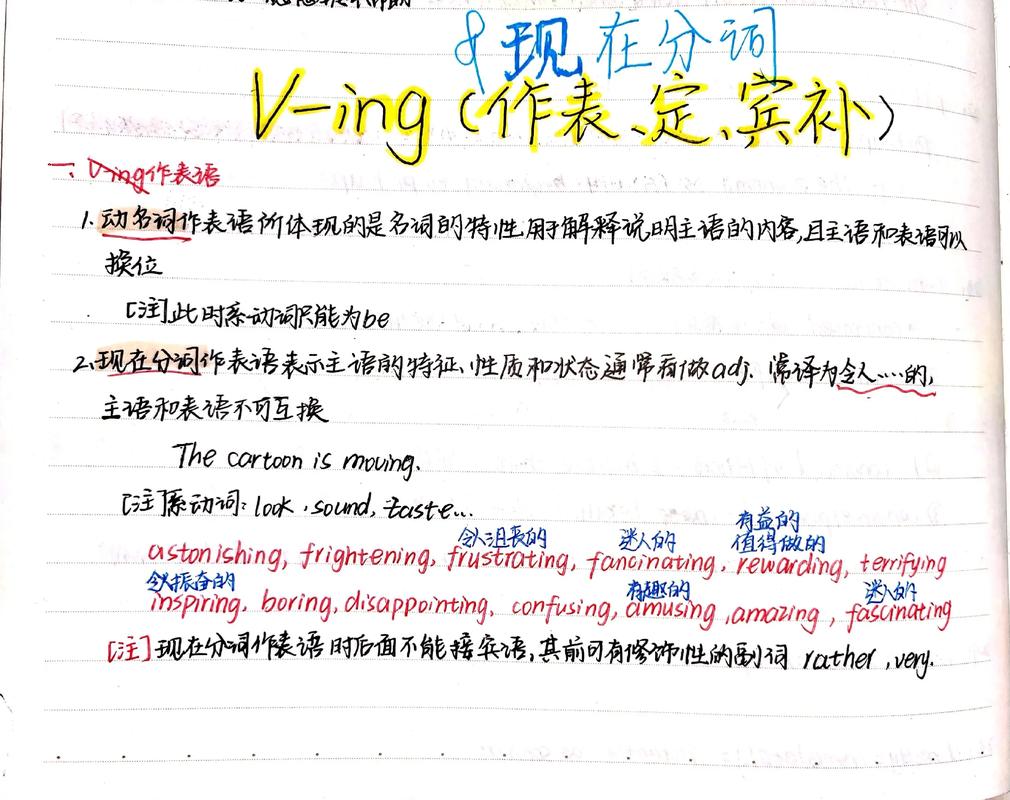 & 现在分词
V-ing (作表、定、宾补)
一、V-ing作表语
1. 动名词作表语所体现的是名词的特性,用于解释说明主语的内容,且主语和表语可以
换位
[注]此时系动词只能为be
2.现在分词作表语表示主语的特征、性质和状态通常看做adj. 常译为令人……的,
主语和表语不可互换
The cartoon is moving.
[注]系动词: look, sound, taste...
令人沮丧的 迷人的 有益的
值得做的
astonishing, frightening, frustrating, fancinating, rewarding, terrifying
令人振奋的 有趣的 迷人的
inspiring, boring, disappointing, confusing, amusing, amazing, fascinating
[注]现在分词作表语时后面不能接宾语,其前可有修饰性的副词 rather, very.